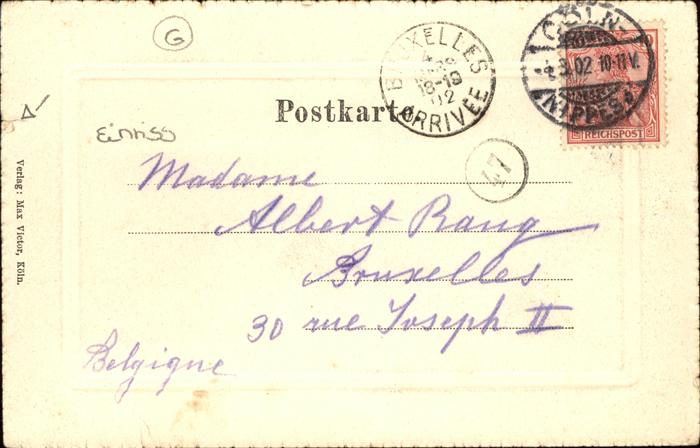 G
BRUXELLES
18-19
02
ARRIVÉE
CÖLN-
3.02 10-11 V.
NIPPES
REICHSPOST
Postkarte
Einriss
47
Madame
Albert Rang
Bruxelles
30 rue Joseph II
Belgique
Verlag: Max Victor, Köln.